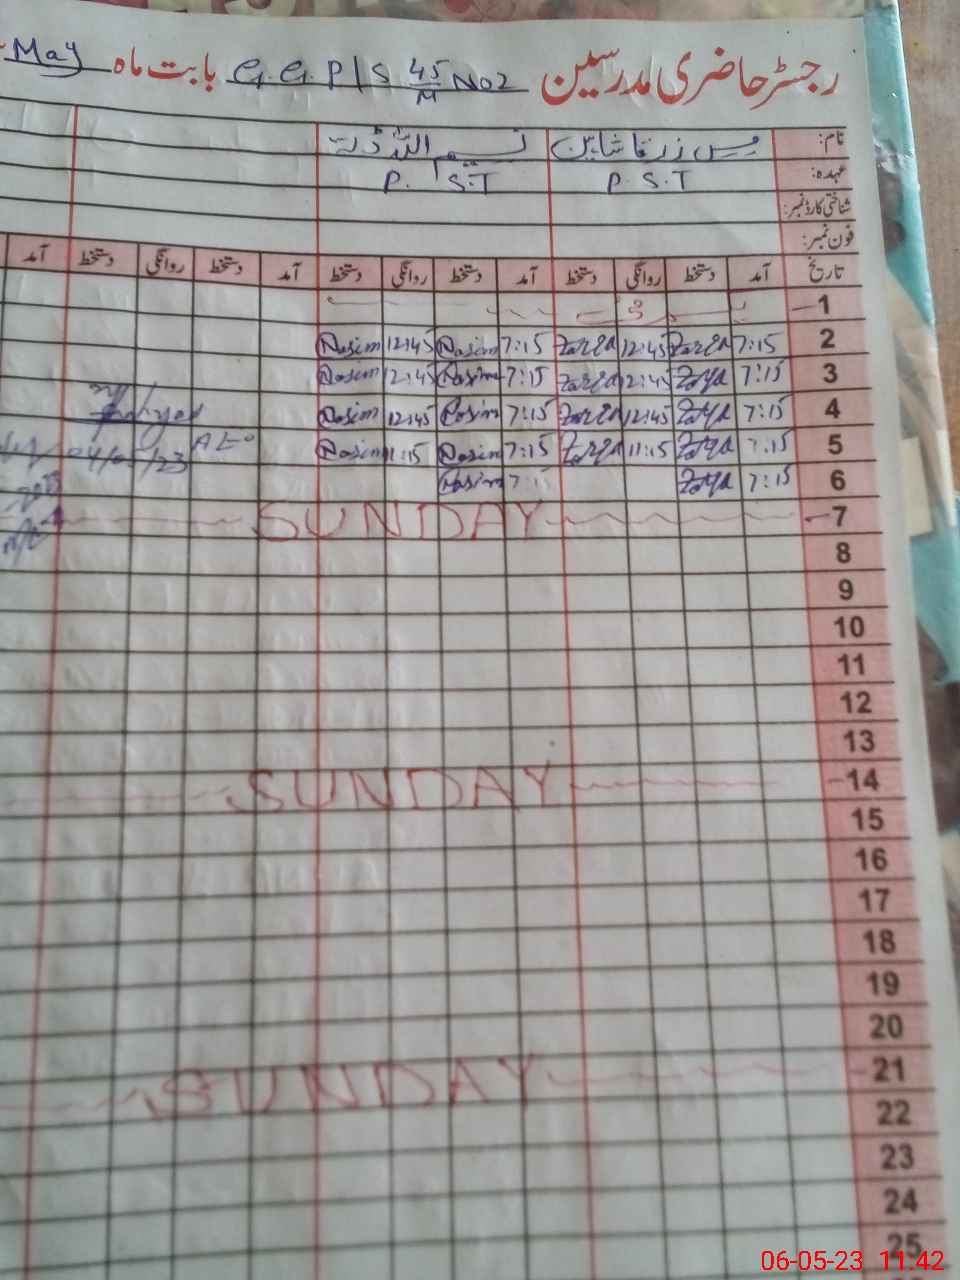 رجسٹر حاضری مدرسین G.G.P/S 45/M No2 بابت ماہ May
نام: مس زرقا شاہین نسیم اللہ ڈتہ
عہدہ: P.S.T P.S.T
شناختی کارڈ نمبر:
فون نمبر:
تاریخ آمد دستخط روانگی دستخط آمد دستخط روانگی دستخط آمد دستخط روانگی دستخط آمد
1
2 7:15 Zarqa 12:45 Zarqa 7:15 Nasim 12:45 Nasim
3 7:15 Zarqa 12:45 Zarqa 7:15 Nasim 12:45 Nasim
4 7:15 Zarqa 12:45 Zarqa 7:15 Nasim 12:45 Nasim
5 7:15 Zarqa 11:15 Zarqa 7:15 Nasim 11:15 Nasim AEO
6 7:15 Zarqa 7:15 Nasim
7 SUNDAY
8
9
10
11
12
13
14 SUNDAY
15
16
17
18
19
20
21 SUNDAY
22
23
24
25
06-05-23 11:42